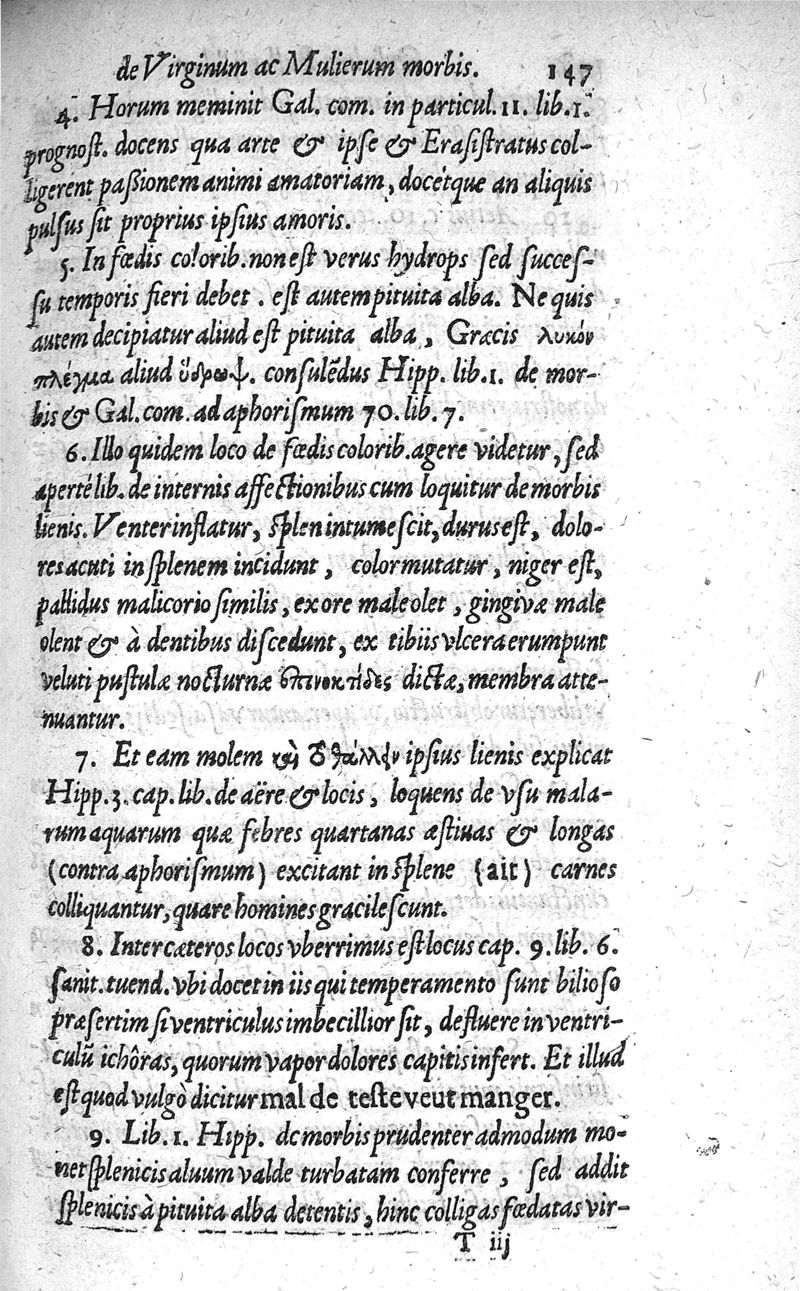 de Virginum ac Mulierum morbis. 147
4. Horum meminit Gal. com. in particul. 11. lib. 1.
prognost. docens qua arte & ipse & Erasistratus col-
ligerent passionem animi amatoriam, docétque an aliquis
pulsus sit proprius ipsius amoris.
5. In fœdis colorib. non est verus hydrops sed succes-
su temporis fieri debet. est autem pituita alba. Ne quis
autem decipiatur aliud est pituita alba, Græcis λυκόν
πλέγμα aliud ὕδρωψ. consulẽdus Hipp. lib. 1. de mor-
bis & Gal. com. ad aphorismum 70. lib. 7.
6. Illo quidem loco de fœdis colorib. agere videtur, sed
aperté lib. de internis affectionibus cum loquitur de morbis
lienis. Venter inflatur, splen intumescit, durus est, dolo-
res acuti in splenem incidunt, color mutatur, niger est,
pallidus malicorio similis, ex ore male olet, gingivæ male
olent & à dentibus discedunt, ex tibiis vlcera erumpunt
veluti pustulæ nocturnæ ἐπινυκτίδες dictæ, membra atte-
nuantur.
7. Et eam molem ipsius lienis explicat
Hipp. 3. cap. lib. de aëre & locis, loquens de vsu mala-
rum aquarum quæ febres quartanas æstiuas & longas
(contra aphorismum) excitant in splene (ait) carnes
colliquantur, quare homines gracilescunt.
8. Inter cæteros locos vberrimus est locus cap. 9. lib. 6.
sanit. tuend. vbi docet in iis qui temperamento sunt bilioso
præsertim si ventriculus imbecillior sit, defluere in ventri-
culũ ichôras, quorum vapor dolores capitis infert. Et illud
est quod vulgò dicitur mal de teste veut manger.
9. Lib. 1. Hipp. de morbis prudenter admodum mo-
net splenicis aluum valde turbatam conferre, sed addit
splenicis à pituita alba detentis, hinc colligas fœdatas vir-
T iij